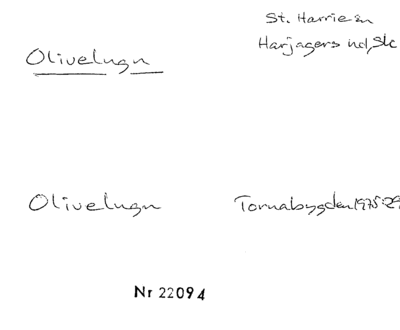 St. Harrie sn
Olivelugn
Harjagers hd, Sk
Olivelugn
Tornabygden 1975:29
Nr 22094